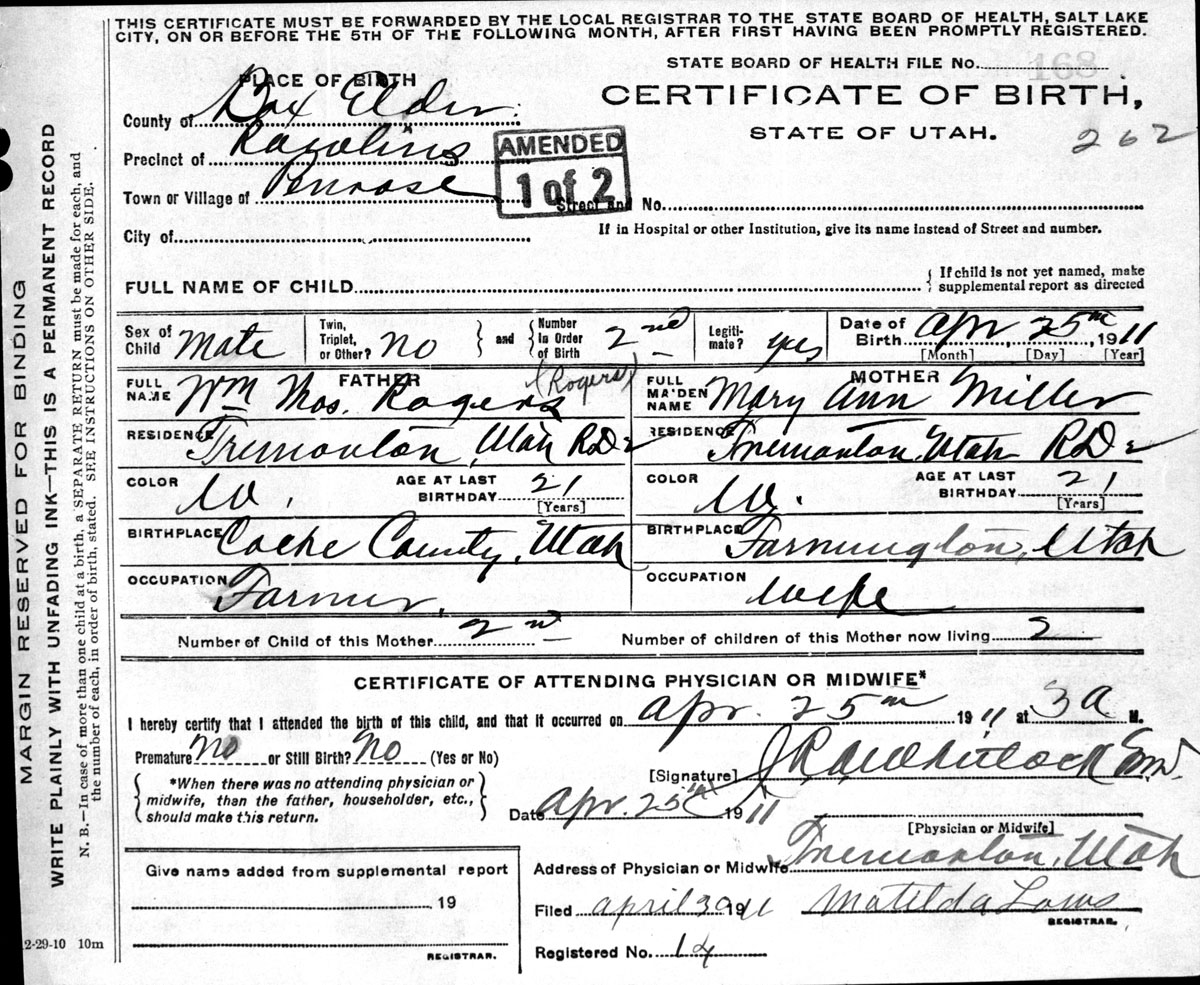 THIS CERTIFICATE MUST BE FORWARDED BY THE LOCAL REGISTRAR TO THE STATE BOARD OF HEALTH, SALT LAKE
CITY, ON OR BEFORE THE 5TH OF THE FOLLOWING MONTH, AFTER FIRST HAVING BEEN PROMPTLY REGISTERED.
STATE BOARD OF HEALTH FILE No. 168
PLACE OF BIRTH
CERTIFICATE OF BIRTH,
County of Box Elder
STATE OF UTAH.
262
Precinct of Rawlins
AMENDED
1 of 2
Town or Village of Penrose
Street and No.
City of
If in Hospital or other Institution, give its name instead of Street and number.
FULL NAME OF CHILD
{ If child is not yet named, make
supplemental report as directed
Sex of Child Male
Twin, Triplet, or Other? No
and
Number in Order of Birth 2nd
Legitimate? yes
Date of Birth Apr 25th, 1911
[Month] [Day] [Year]
FATHER
FULL NAME Wm Thos. Rogers (Rogers)
MOTHER
FULL MAIDEN NAME Mary Ann Miller
RESIDENCE Tremonton, Utah RD 2
RESIDENCE Tremonton, Utah RD 2
COLOR W.
AGE AT LAST BIRTHDAY 21
[Years]
COLOR W.
AGE AT LAST BIRTHDAY 21
[Years]
BIRTHPLACE Cache County, Utah
BIRTHPLACE Farmington, Utah
OCCUPATION Farmer.
OCCUPATION wife
Number of Child of this Mother 2nd
Number of children of this Mother now living 2
CERTIFICATE OF ATTENDING PHYSICIAN OR MIDWIFE*
I hereby certify that I attended the birth of this child, and that it occurred on Apr. 25th 1911 at 3 a M.
Premature No or Still Birth? No (Yes or No)
[Signature]
*When there was no attending physician or
midwife, than the father, householder, etc.,
should make this return.
Date Apr. 25th 1911
[Physician or Midwife]
Give name added from supplemental report
19
REGISTRAR.
Address of Physician or Midwife Tremonton, Utah
Filed April 30 1911 Matilda Laws
REGISTRAR.
Registered No. 14
2-29-10 10m
MARGIN RESERVED FOR BINDING
WRITE PLAINLY WITH UNFADING INK—THIS IS A PERMANENT RECORD
N. B.—In case of more than one child at a birth, a SEPARATE RETURN must be made for each, and
the number of each, in order of birth, stated. SEE INSTRUCTIONS ON OTHER SIDE.